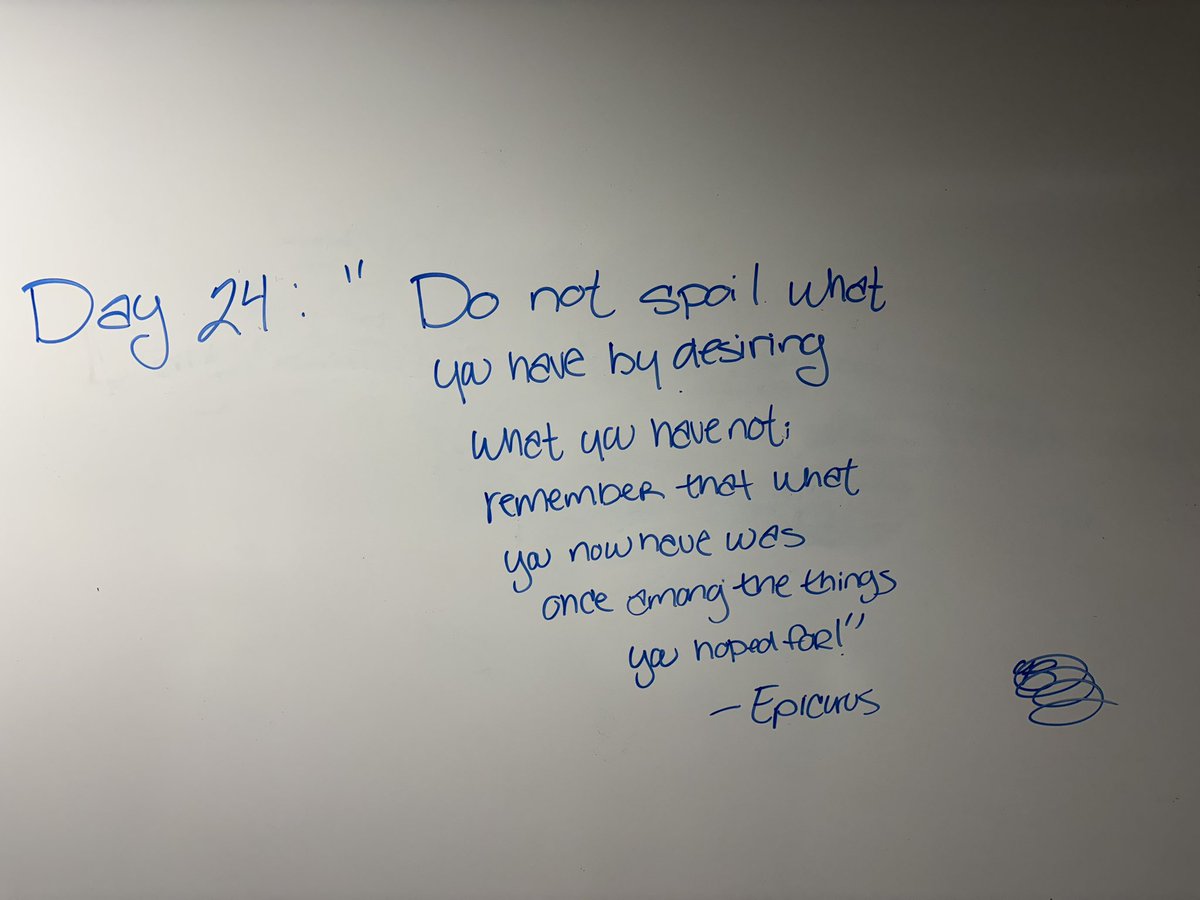 Day 24: " Do not spoil what
you have by desiring
what you have not;
remember that what
you now have was
once among the things
you hoped for!"
- Epicurus